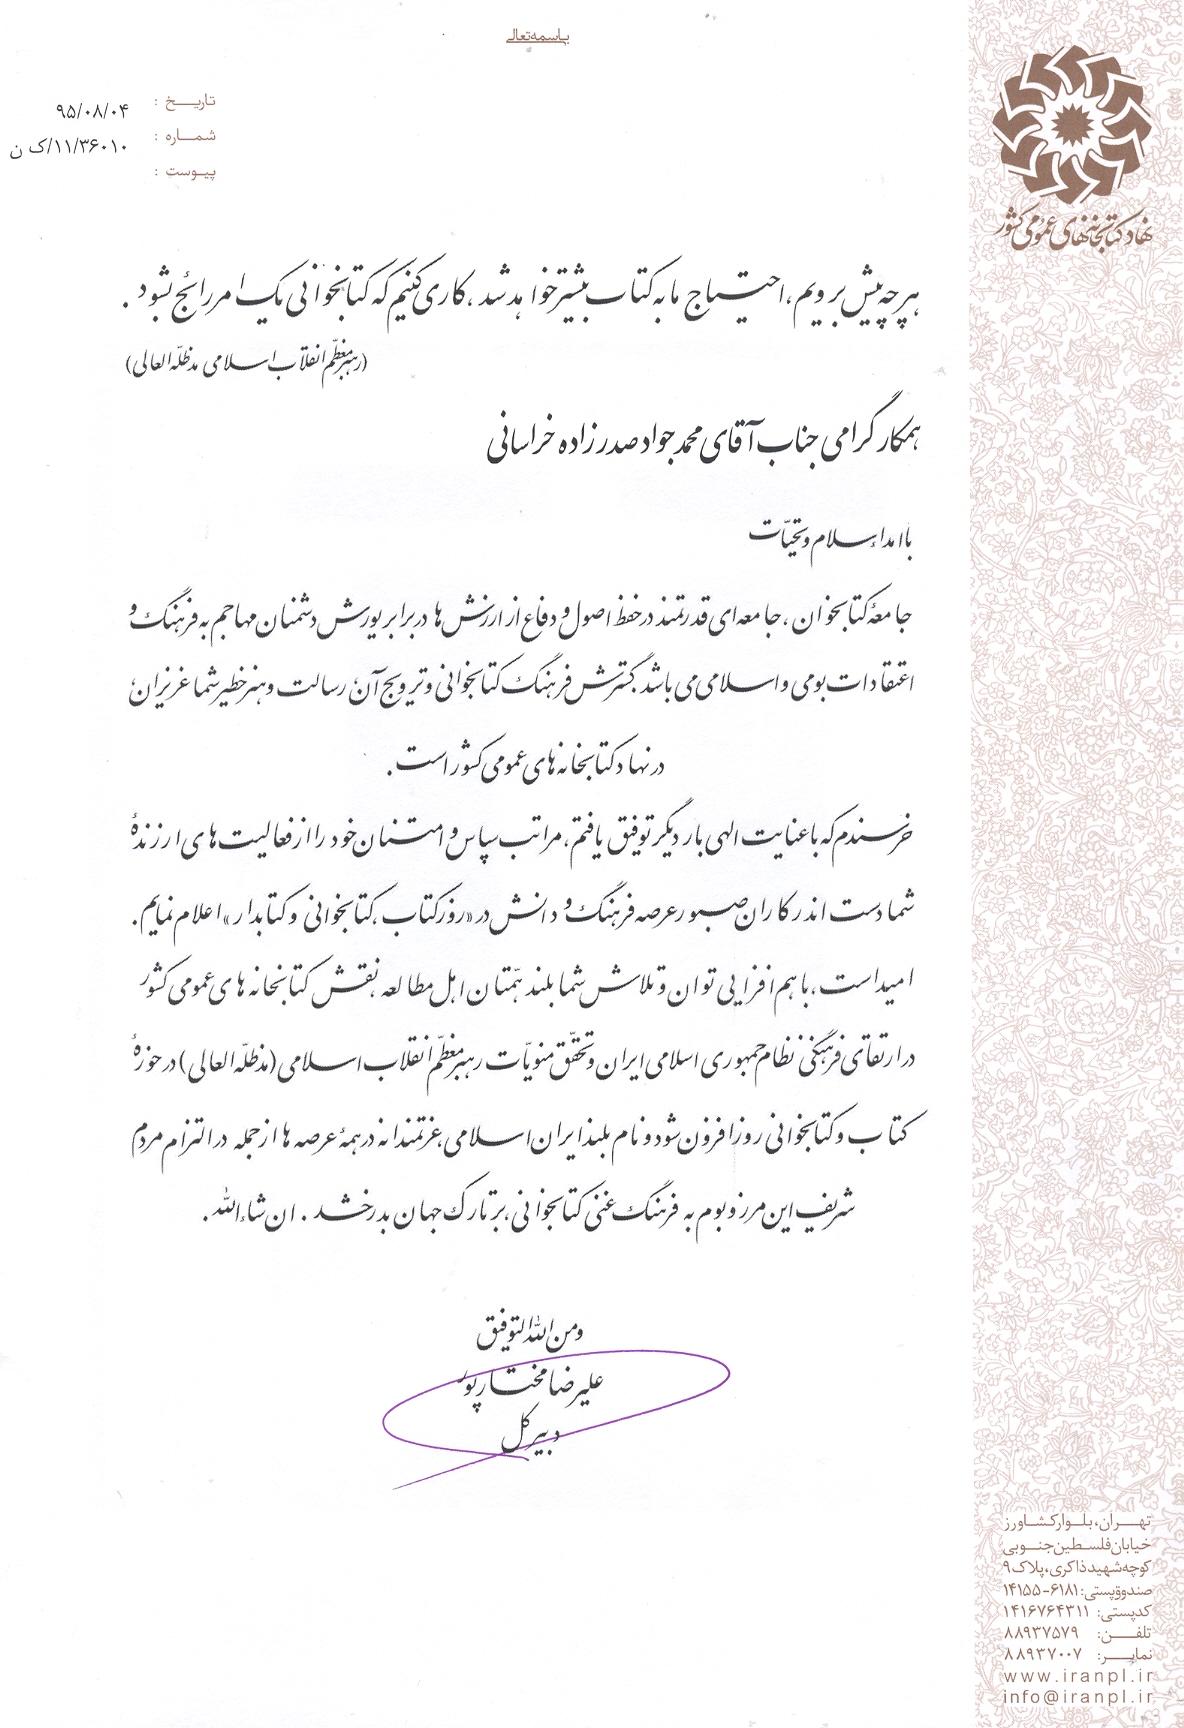 باسمه‌تعالی
تاریخ : ۹۵/۰۸/۰۴
شماره : ۱۱/۳۶۰۱۰/ک ن
پیوست :
نهاد کتابخانه‌های عمومی کشور
هرچه پیش برویم، احتیاج ما به کتاب بیشتر خواهد شد، کاری کنیم که کتابخوانی یک امر رائج بشود .
(رهبر معظّم انقلاب اسلامی مدظلّه العالی)
همکار گرامی جناب آقای محمدجواد صدرزاده خراسانی
با اهداء سلام و تحیّات
جامعهٔ کتابخوان، جامعه‌ای قدرتمند در حفظ اصول و دفاع از ارزش ها در برابر یورش دشمنان مهاجم به فرهنگ و
اعتقادات بومی و اسلامی می باشد. گسترش فرهنگ کتابخوانی و ترویج آن رسالت و هنر خطیر شما عزیزان
در نهاد کتابخانه های عمومی کشور است .
خرسندم که با عنایت الهی بار دیگر توفیق یافتم، مراتب سپاس و امتنان خود را از فعالیت های ارزندهٔ
شما دست اندرکاران صبور عرصه فرهنگ و دانش در «روز کتاب، کتابخوانی و کتابدار» اعلام نمایم.
امید است، با هم افزایی توان و تلاش شما بلند همّتان اهل مطالعه، نقش کتابخانه های عمومی کشور
در ارتقای فرهنگی نظام جمهوری اسلامی ایران و تحقّق منویّات رهبر معظّم انقلاب اسلامی (مدظلّه العالی) در حوزهٔ
کتاب و کتابخوانی روزافزون شود و نام بلند ایران اسلامی، عزتمندانه در همهٔ عرصه ها از جمله در التزام مردم
شریف این مرز و بوم به فرهنگ غنی کتابخوانی، بر تارک جهان بدرخشد . ان شاءالله .
ومن الله التوفیق
علیرضا مختارپور
دبیرکل
تهران، بلوار کشاورز
خیابان فلسطین جنوبی
کوچه شهید ذاکری، پلاک ۹
صندوق پستی: ۶۱۸۱-۱۴۱۵۵
کدپستی: ۱۴۱۶۷۶۴۳۱۱
تلفن: ۸۸۹۳۷۵۷۹
نمابر: ۸۸۹۳۷۰۰۷
www.iranpl.ir
info@iranpl.ir